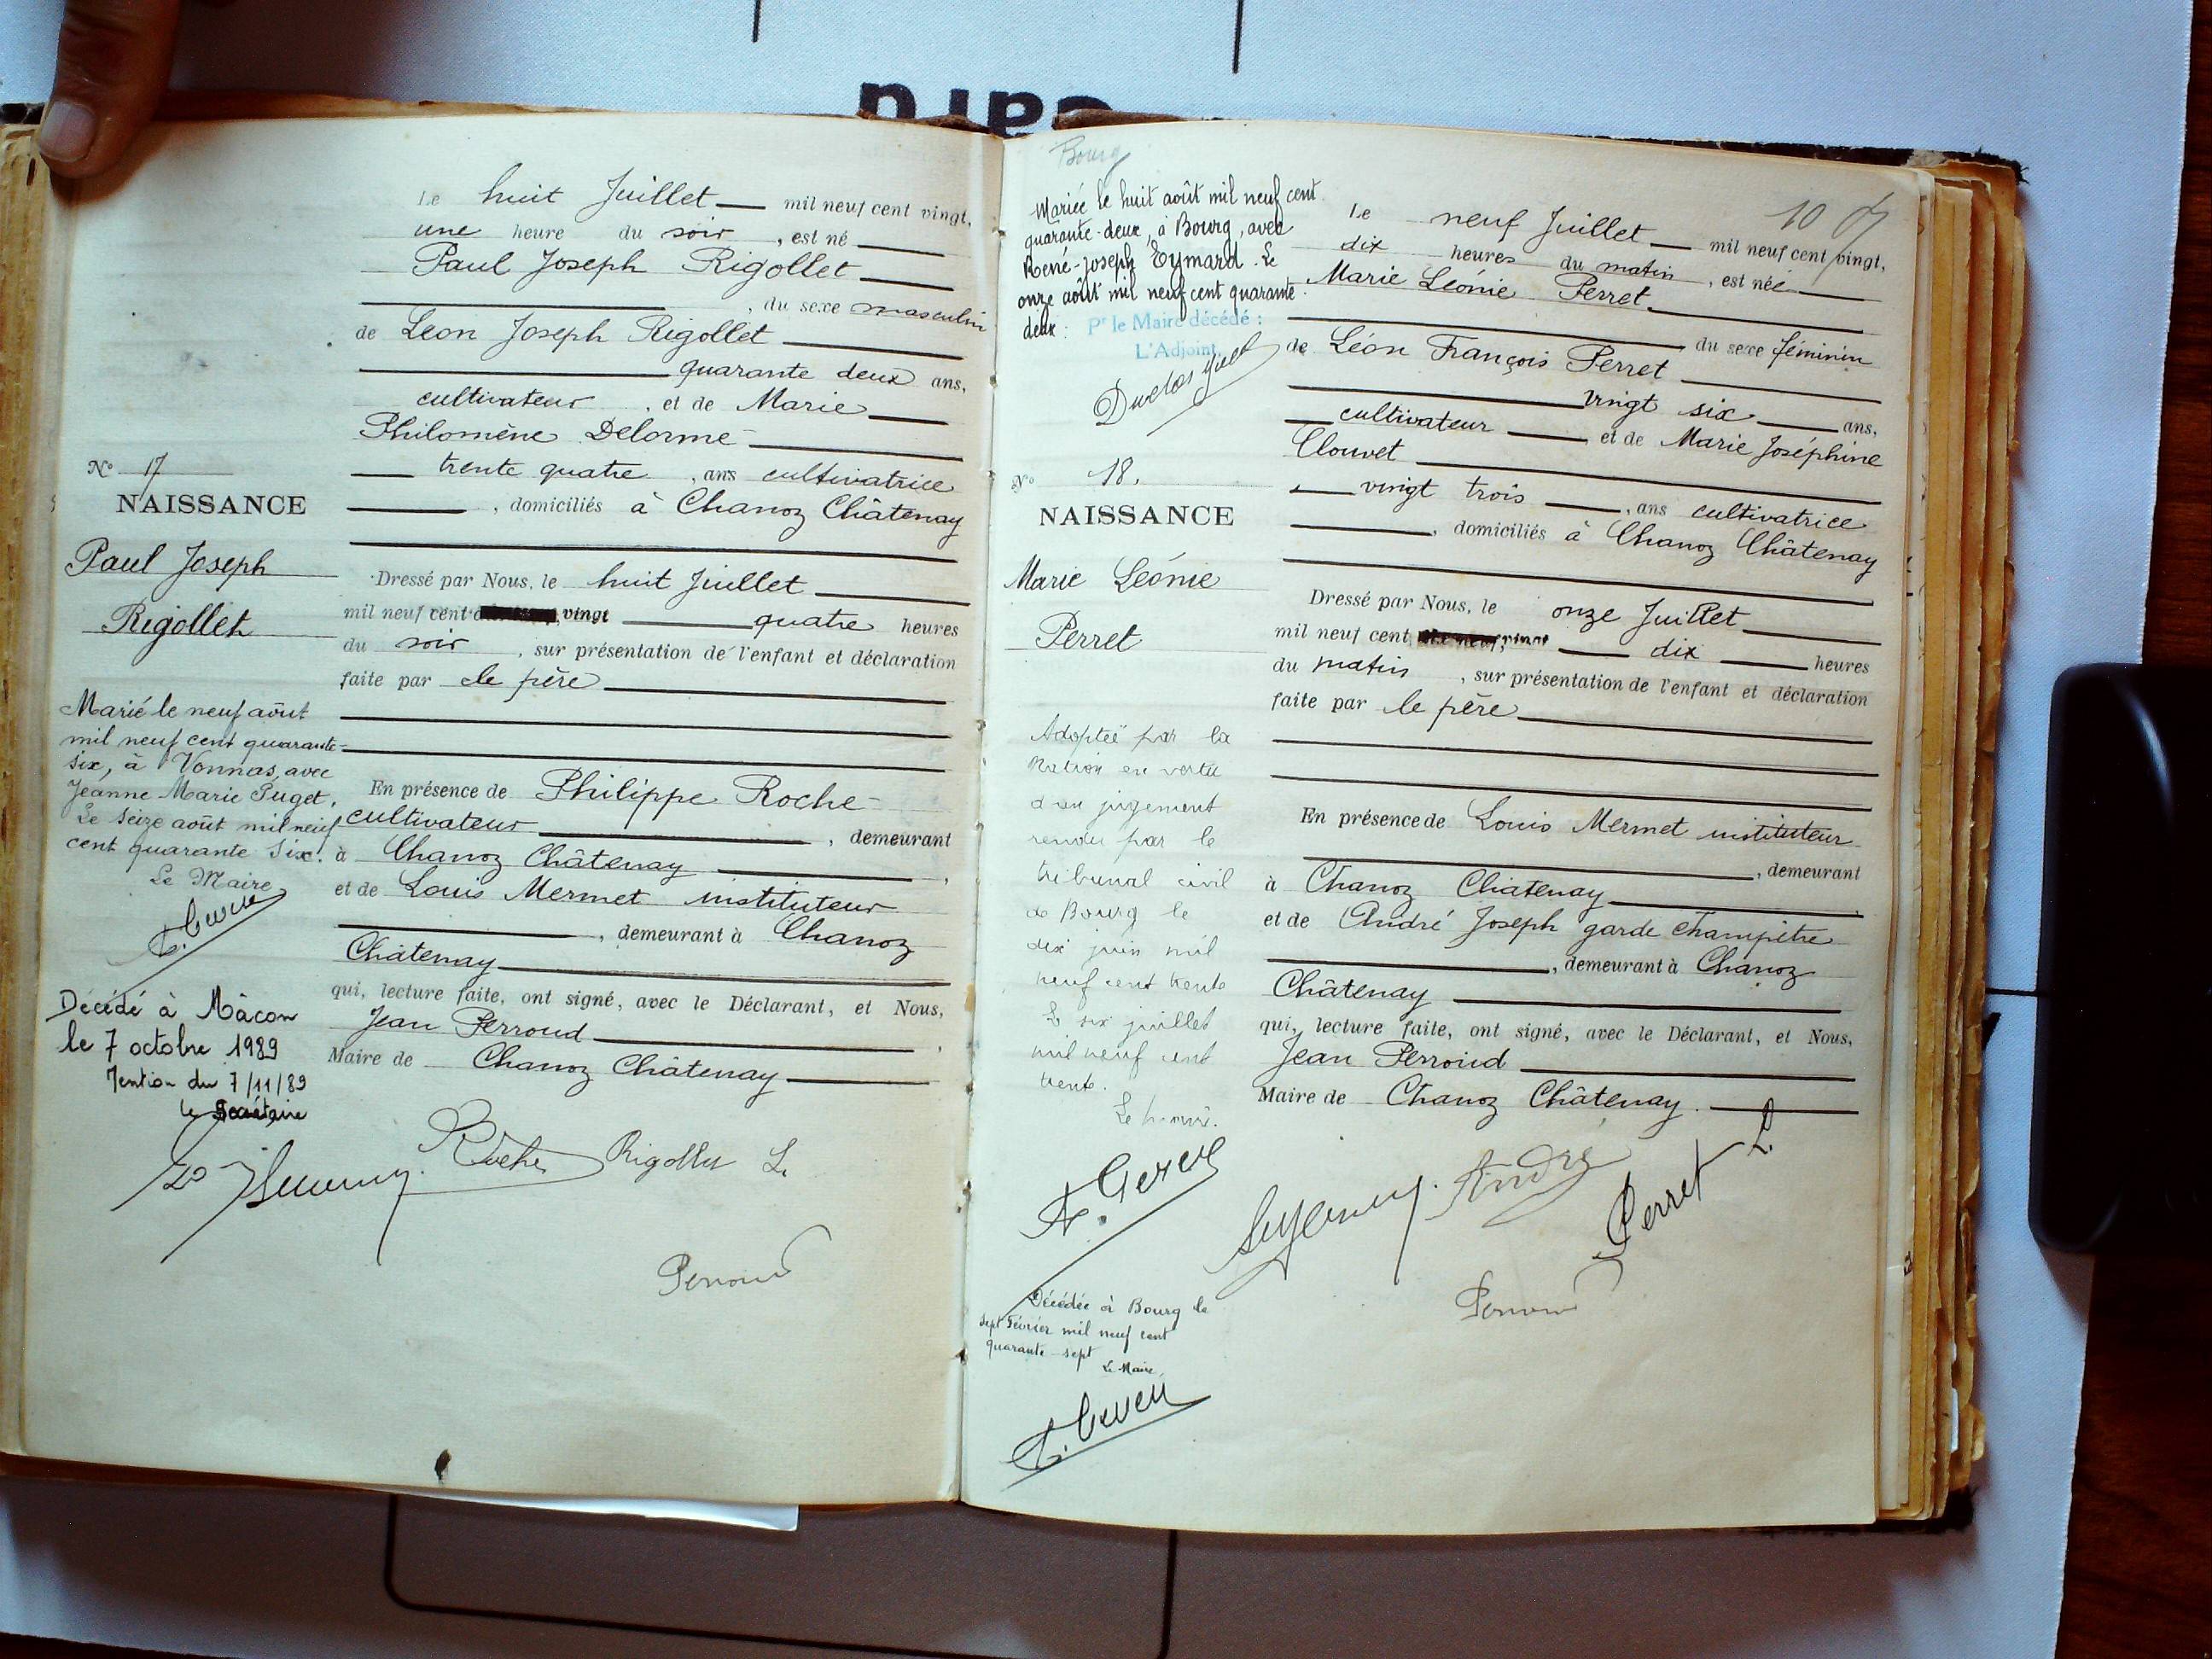 Le huit Juillet mil neuf cent vingt,
une heure du soir, est né
Paul Joseph Rigollet
, du sexe masculin
de Léon Joseph Rigollet
quarante deux ans,
cultivateur, et de Marie
Philomène Delorme
trente quatre, ans cultivatrice
, domiciliés à Chanoz Châtenay
N° 17
NAISSANCE
Paul Joseph
Rigollet
Dressé par Nous, le huit Juillet
mil neuf cent vingt quatre heures
du soir, sur présentation de l'enfant et déclaration
faite par le père
Marié le neuf août
mil neuf cent quarante-
six, à Vonnas, avec
Jeanne Marie Puget.
Le seize août mil neuf
cent quarante six.
Le Maire
En présence de Philippe Roche
cultivateur, demeurant
à Chanoz Châtenay,
et de Louis Mermet instituteur
, demeurant à Chanoz
Châtenay
qui, lecture faite, ont signé, avec le Déclarant, et Nous,
Jean Perroud,
Maire de Chanoz Châtenay
Décédé à Mâcon
le 7 octobre 1989
Mention du 7/11/89
le Secrétaire
Roche Rigollet L.
Perroud
Bourg
Mariée le huit août mil neuf cent
quarante-deux, à Bourg, avec
René-Joseph Eymard. Le
onze août mil neuf cent quarante
deux:
Pr le Maire décédé :
L'Adjoint,
10
Le neuf Juillet mil neuf cent vingt,
dix heures du matin, est née
Marie Léonie Perret
du sexe féminin
de Léon François Perret
vingt six ans,
cultivateur et de Marie Joséphine
Clouvet
vingt trois, ans cultivatrice
, domiciliés à Chanoz Châtenay
N° 18.
NAISSANCE
Marie Léonie
Perret
Dressé par Nous, le onze Juillet
mil neuf cent vingt dix heures
du matin, sur présentation de l'enfant et déclaration
faite par le père
Adoptée par la
Nation en vertu
d'un jugement
rendu par le
tribunal civil
de Bourg le
dix juin mil
neuf cent trente
Le six juillet
mil neuf cent
trente.
Le maire.
En présence de Louis Mermet instituteur
, demeurant
à Chanoz Châtenay
et de André Joseph garde champêtre
, demeurant à Chanoz
Châtenay
qui, lecture faite, ont signé, avec le Déclarant, et Nous,
Jean Perroud
Maire de Chanoz Châtenay.
André
Perret L
Perroud
Décédée à Bourg le
sept Février mil neuf cent
quarante-sept
Le Maire,